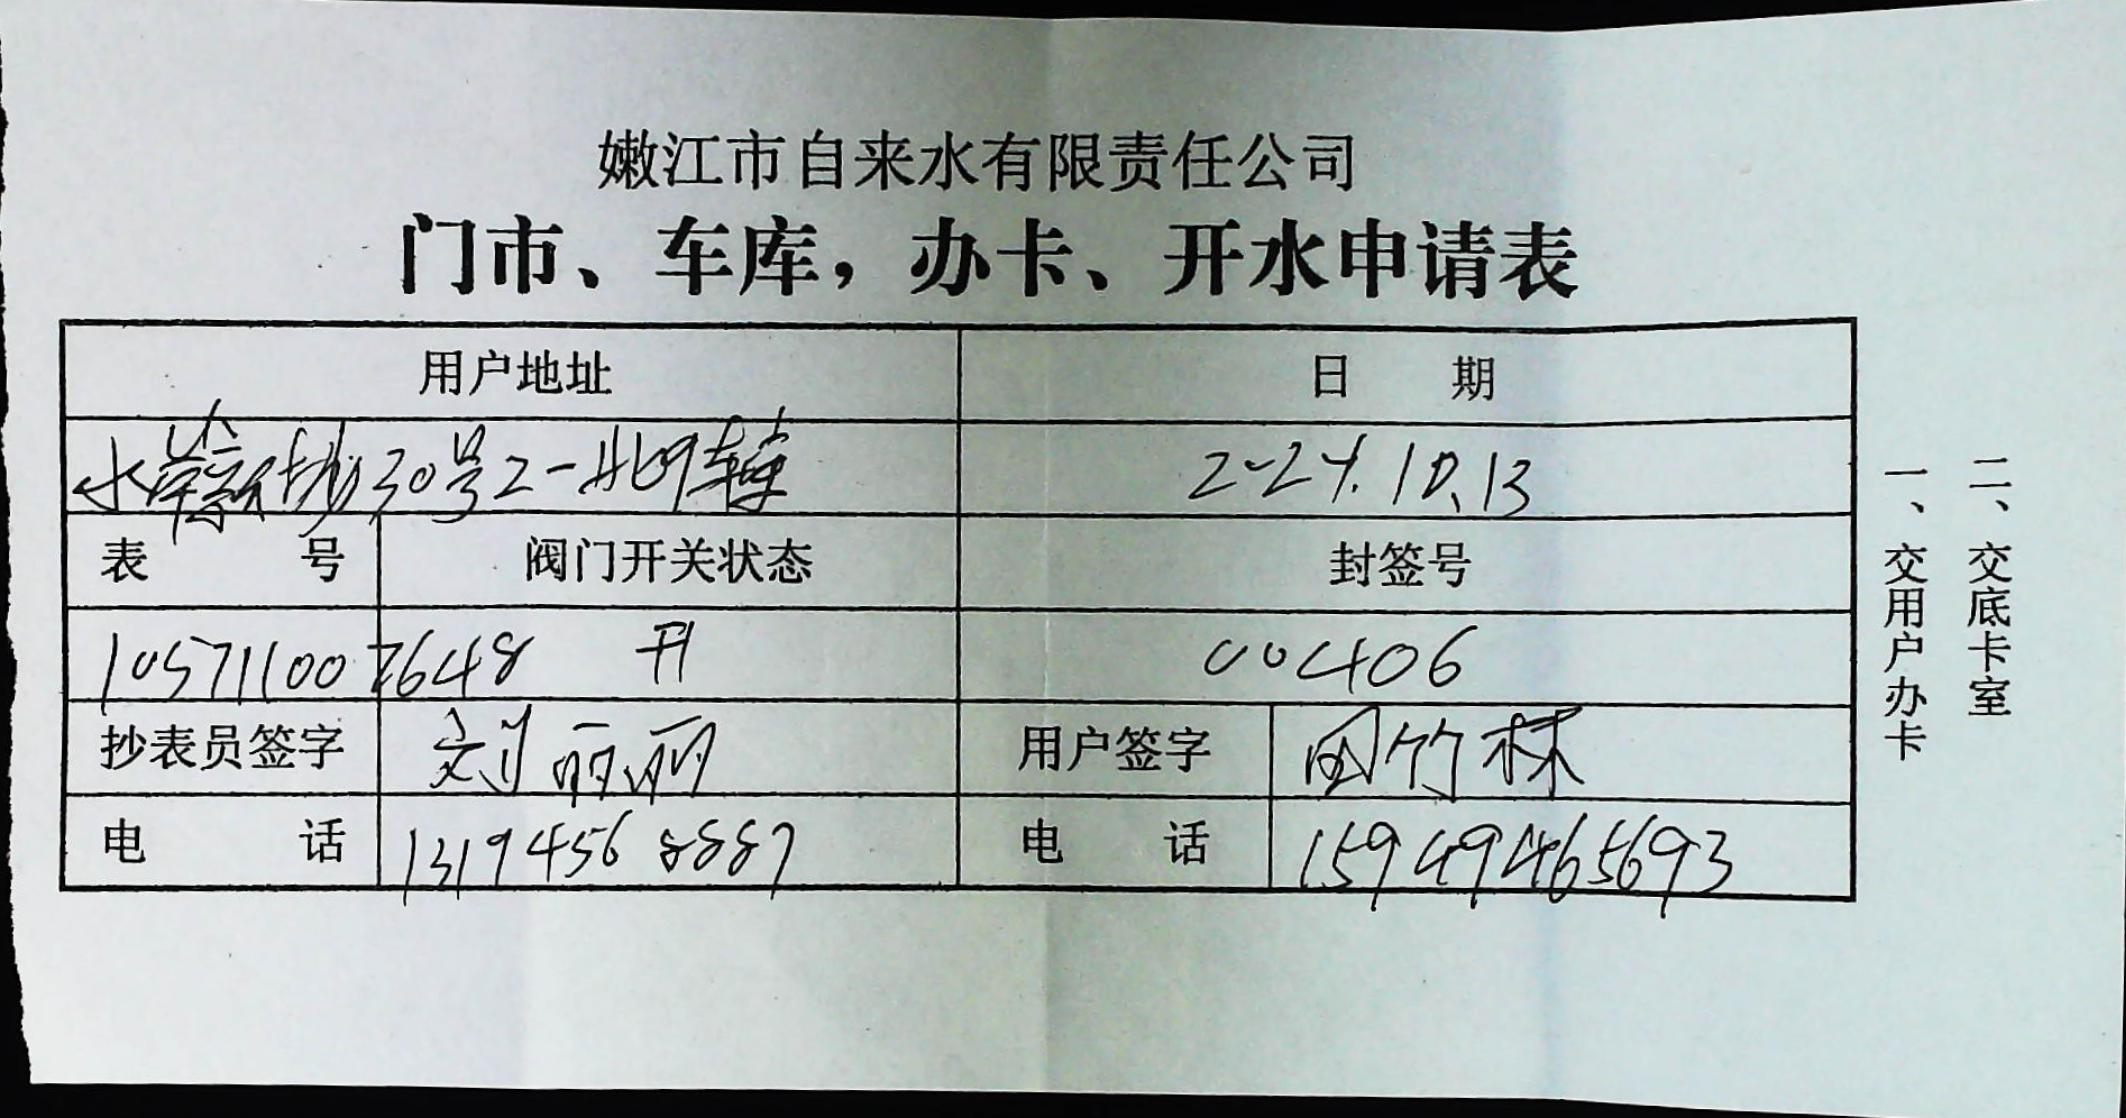 嫩江市自来水有限责任公司
门市、车库，办卡、开水申请表
用户地址 日 期
水岸新城30号2-北9车库 2024.10.13
表 号 阀门开关状态 封签号
105711007648 开 00406
抄表员签字 刘丽丽 用户签字 田竹林
电 话 13194568887 电 话 15949465693
二、交底卡室
一、交用户办卡